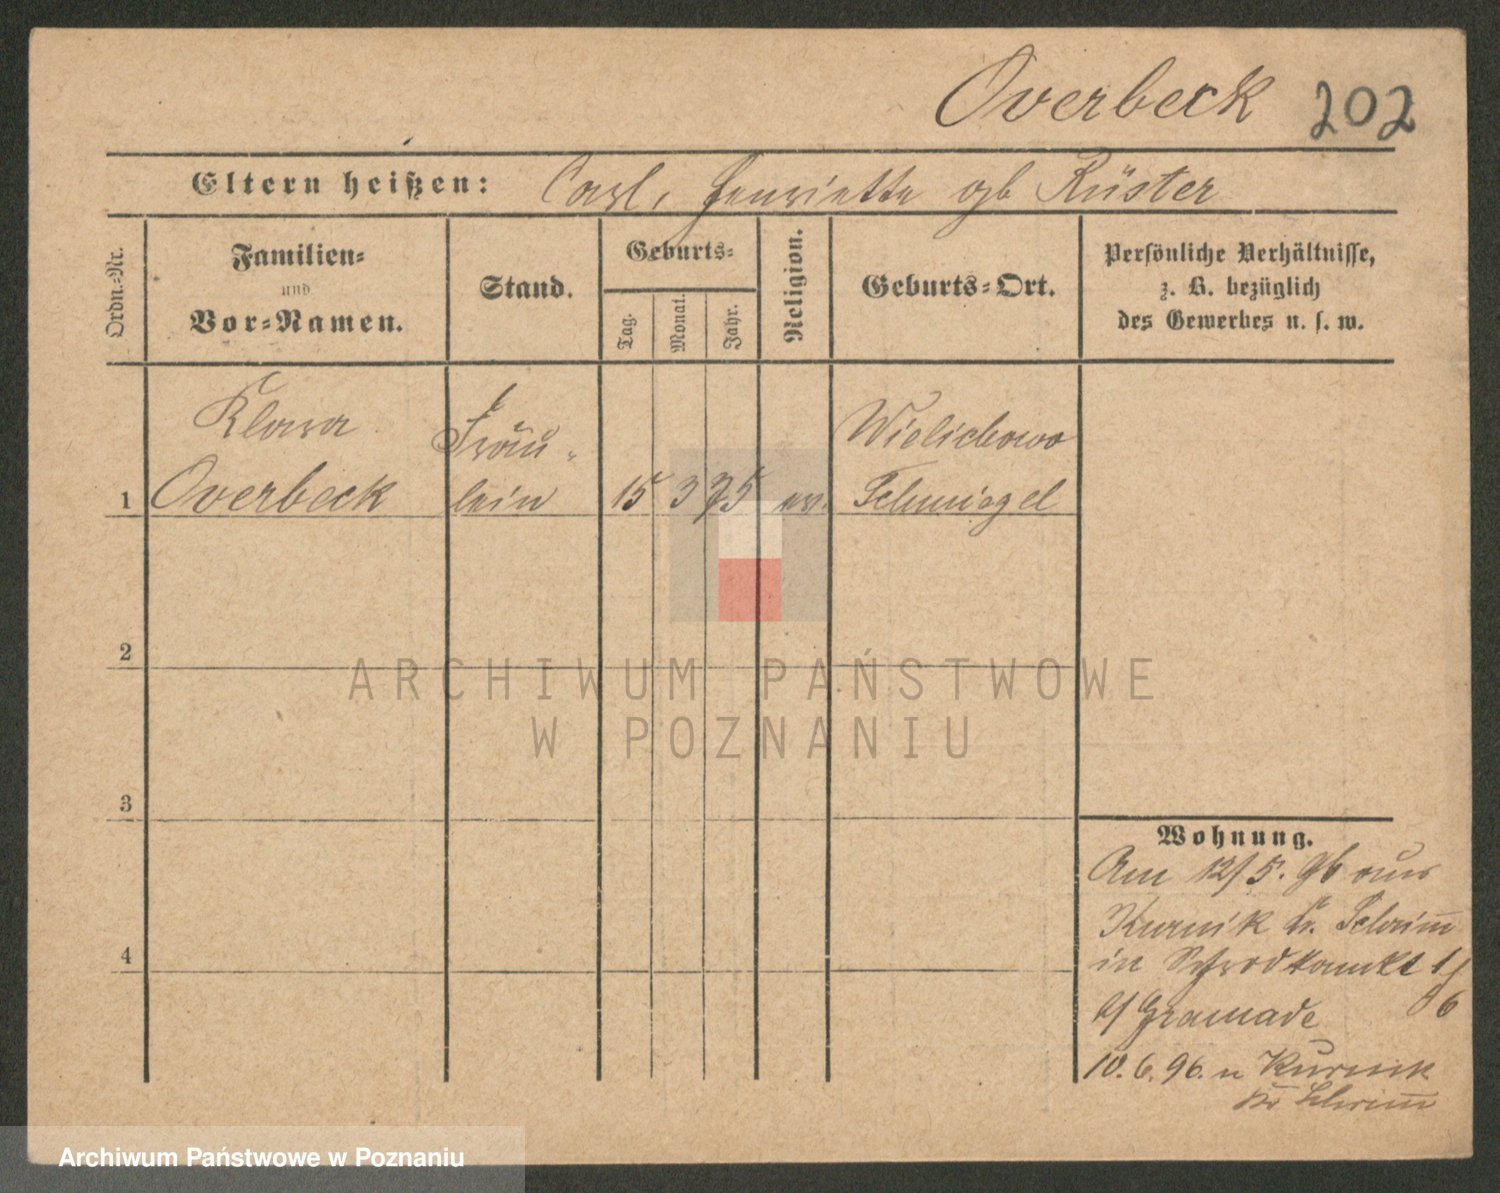 Overbeck 202
Eltern heißen: Carl, Henriette gb Rüster
Ordn.=Nr.
Familien=
und
Vor=Namen.
Stand.
Geburts=
Tag.
Monat.
Jahr.
Religion.
Geburts=Ort.
Persönliche Verhältnisse,
z. B. bezüglich
des Gewerbes u. s. w.
Klara
Overbeck
Fräu-
lein
1
15 3 75 ev.
Wielichowo
Schmiegel
2
3
4
Wohnung.
Am 12/5. 96 aus
Kurnik Kr. Schrimm
in
b/ Gramade
10.6.96. n Kurnik
Kr Schrimm
ARCHIWUM PAŃSTWOWE
W POZNANIU
Archiwum Państwowe w Poznaniu